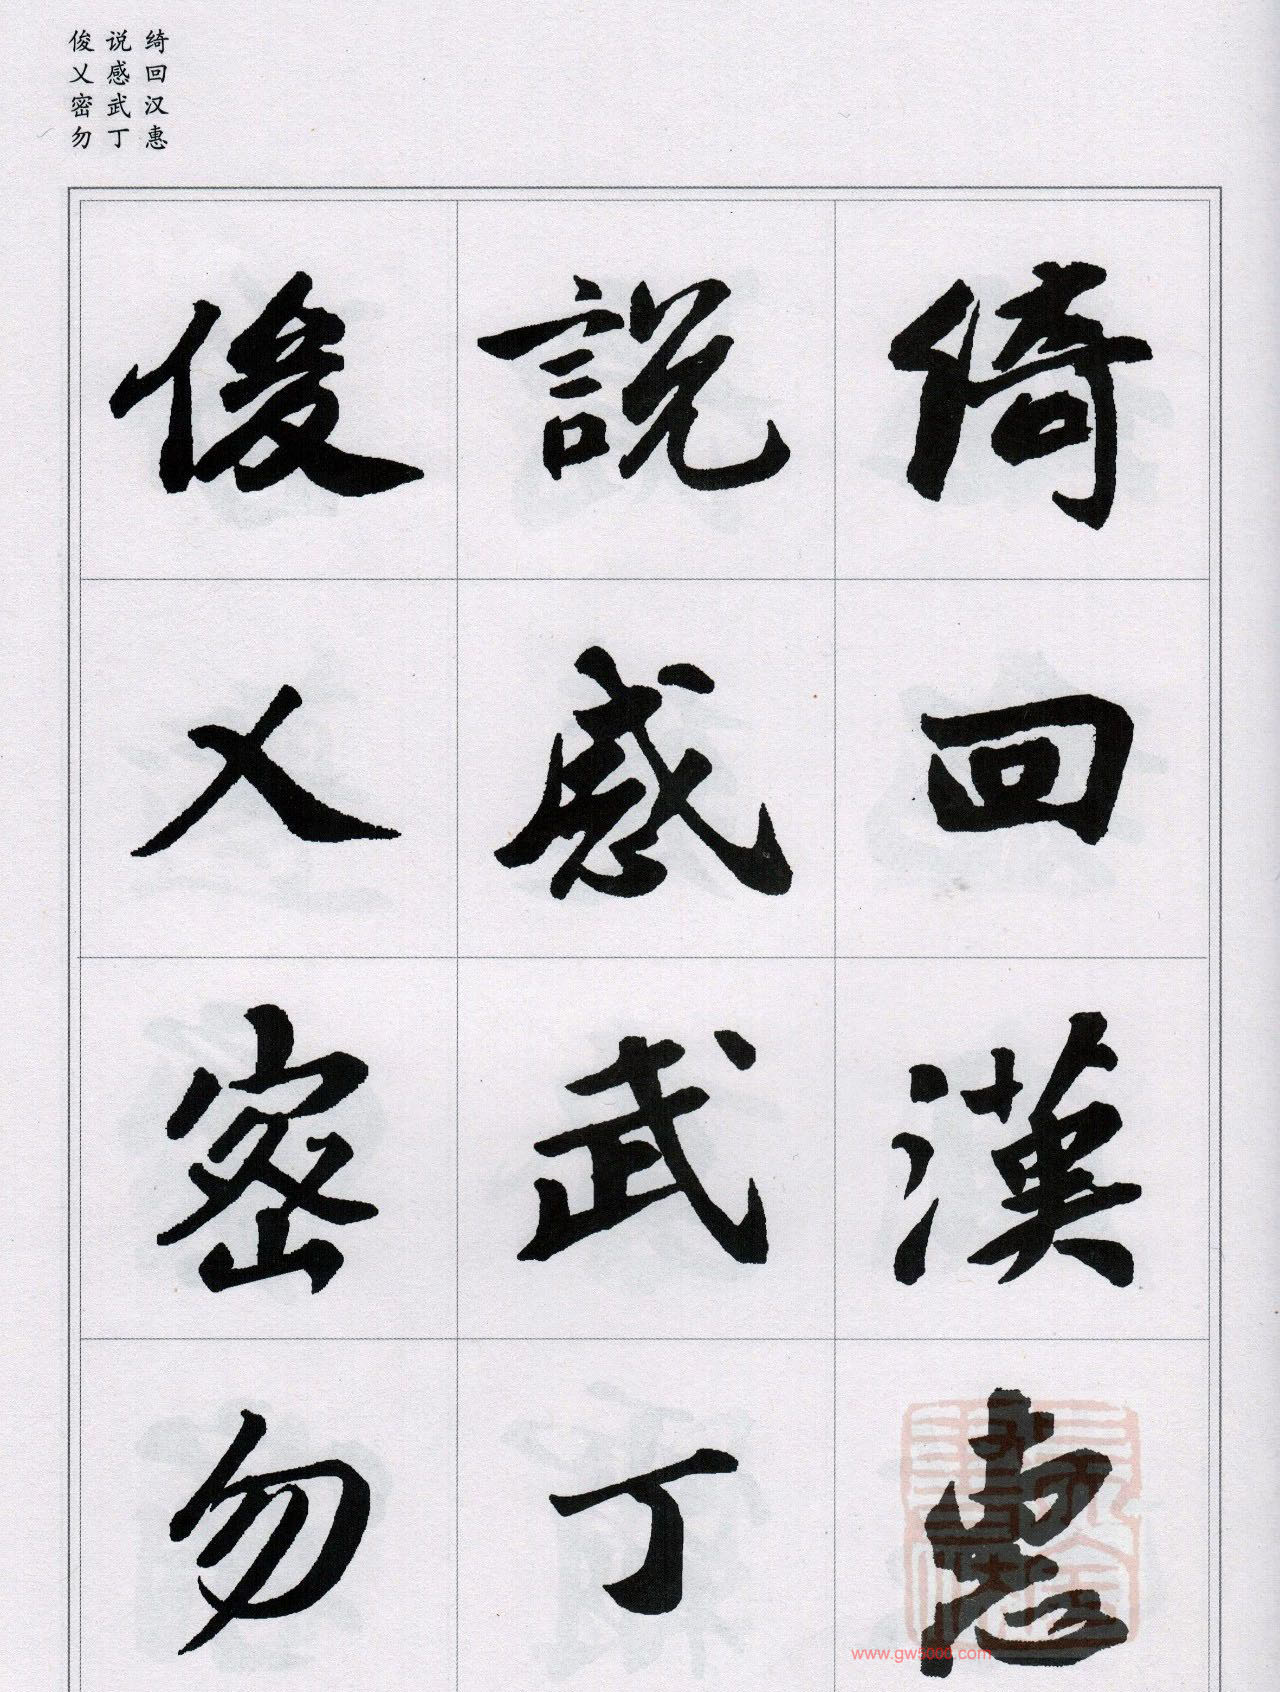 绮回汉惠
说感武丁
俊乂密勿
綺回漢惠
說感武丁
俊乂密勿
www.gw5000.com